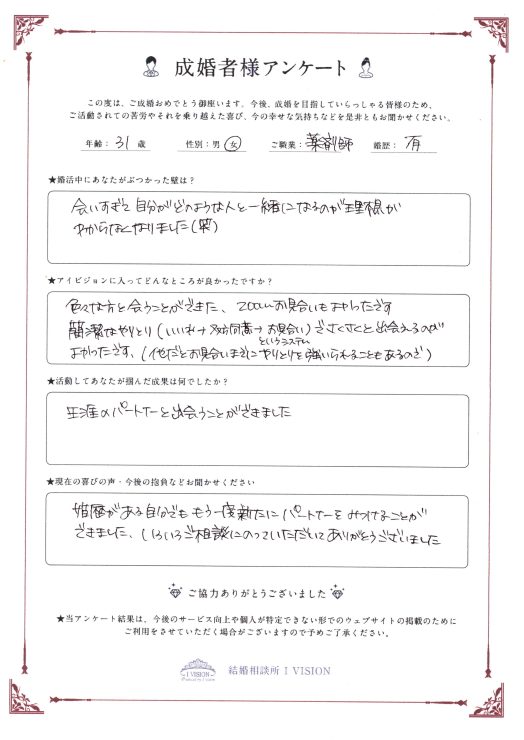 成婚者様アンケート
この度は、ご成婚おめでとう御座います。今後、成婚を目指していらっしゃる皆様のため、
ご活動されての苦労やそれを乗り越えた喜び、今の幸せな気持ちなどを是非ともお聞かせください。
年齢：31歳 性別：男 女 ご職業：薬剤師 婚歴：有
★婚活中にあなたがぶつかった壁は？
会いすぎて自分がどのような人と一緒になるのが理想か
わからなくなりました(笑)
★アイビジョンに入ってどんなところが良かったですか？
色々な方と会うことができた、zoomお見合いもよかったです
簡潔なやりとり(いいね→双方同意→お見合い)でさくさくと出会えるのが
というシステム
よかったです、(他だとお見合いまでにやりとりを強いられることもあるので)
★活動してあなたが掴んだ成果は何でしたか？
生涯のパートナーと出会うことができました
★現在の喜びの声・今後の抱負などお聞かせください
婚歴がある自分でももう一度新たにパートナーをみつけることが
できました、いろいろご相談にのっていただいてありがとうございました
ご協力ありがとうございました
★当アンケート結果は、今後のサービス向上や個人が特定できない形でのウェブサイトの掲載のために
ご利用をさせていただく場合がございますので予めご了承ください。
I VISION
結婚相談所 I VISION